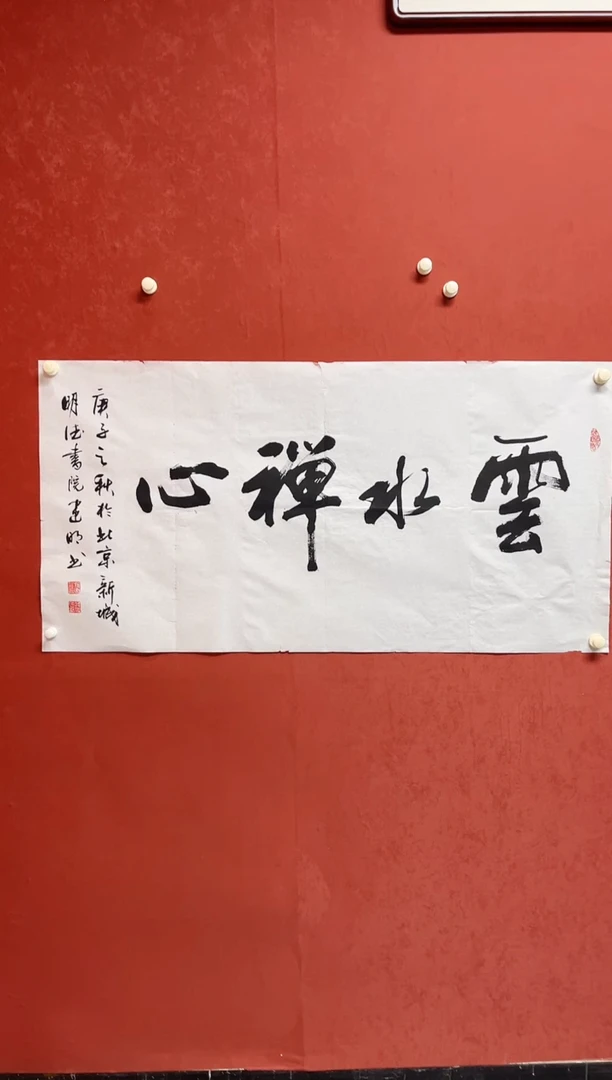 雲水禅心
庚子之秋於北京新城
明德書院建明书